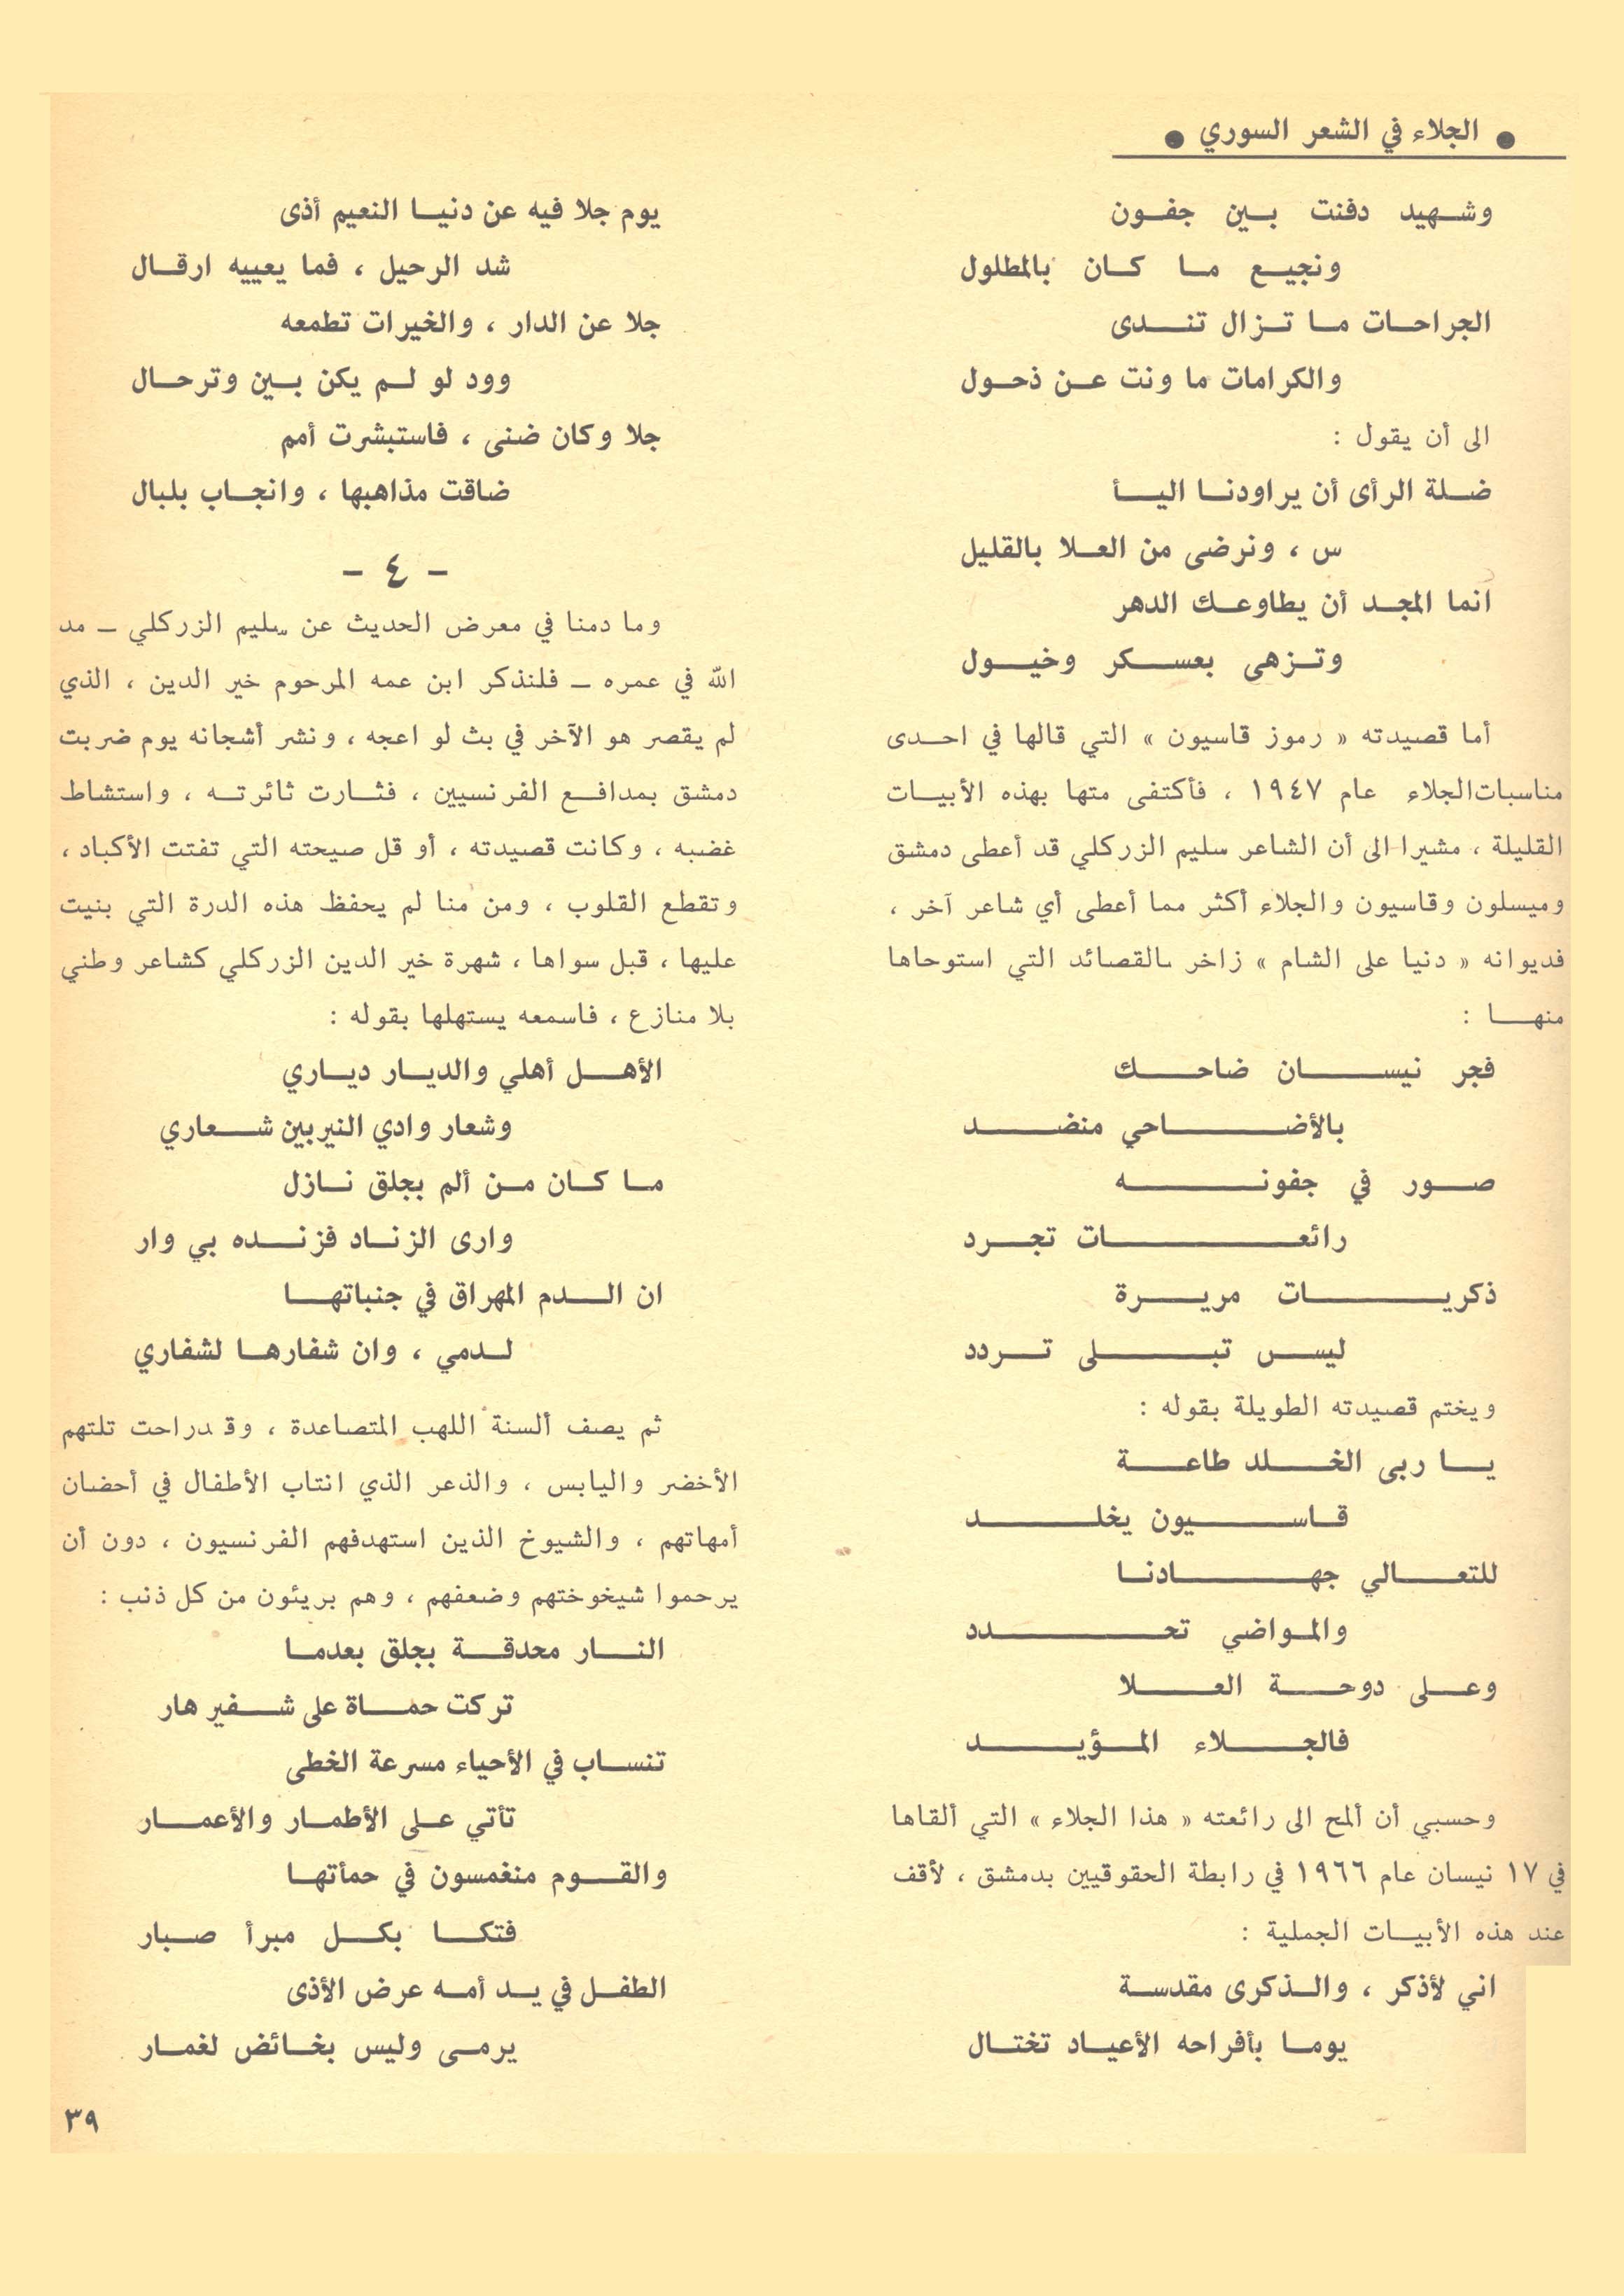 ● الجلاء في الشعر السوري ●
وشهيد دفنت بين جفون
ونجيع ما كان بالمطلول
الجراحات ما تزال تندى
والكرامات ما ونت عن ذحول
الى أن يقول :
ضلة الرأى أن يراودنا اليأ
س ، ونرضى من العلا بالقليل
انما المجد أن يطاوعك الدهر
وتزهى بعسكر وخيول
أما قصيدته « رموز قاسيون » التي قالها في احدى
مناسبات الجلاء عام ١٩٤٧ ، فأكتفى متها بهذه الأبيات
القليلة ، مشيرا الى أن الشاعر سليم الزركلي قد أعطى دمشق
وميسلون وقاسيون والجلاء أكثر مما أعطى أي شاعر آخر ،
فديوانه « دنيا على الشام » زاخر بالقصائد التي استوحاها
منها :
فجر نيسان ضاحك
بالأضاحي منضد
صور في جفونه
رائعات تجرد
ذكريات مريرة
ليس تبلى تردد
ويختم قصيدته الطويلة بقوله :
يا ربى الخلد طاعة
قاسيون يخلد
للتعالي جهادنا
والمواضي تحدد
وعلى دوحة العلا
فالجلاء المؤيد
وحسبي أن ألمح الى رائعته « هذا الجلاء » التي ألقاها
في ١٧ نيسان عام ١٩٦٦ في رابطة الحقوقيين بدمشق ، لأقف
عند هذه الأبيات الجملية :
اني لأذكر ، والذكرى مقدسة
يوما بأفراحه الأعياد تختال
يوم جلا فيه عن دنيا النعيم أذى
شد الرحيل ، فما يعييه ارقال
جلا عن الدار ، والخيرات تطمعه
وود لو لم يكن بين وترحال
جلا وكان ضنى ، فاستبشرت أمم
ضاقت مذاهبها ، وانجاب بلبال
– ٤ –
وما دمنا في معرض الحديث عن سليم الزركلي – مد
الله في عمره – فلنذكر ابن عمه المرحوم خير الدين ، الذي
لم يقصر هو الآخر في بث لو اعجه ، ونشر أشجانه يوم ضربت
دمشق بمدافع الفرنسيين ، فثارت ثائرته ، واستشاط
غضبه ، وكانت قصيدته ، أو قل صيحته التي تفتت الأكباد ،
وتقطع القلوب ، ومن منا لم يحفظ هذه الدرة التي بنيت
عليها ، قبل سواها ، شهرة خير الدين الزركلي كشاعر وطني
بلا منازع ، فاسمعه يستهلها بقوله :
الأهل أهلي والديار دياري
وشعار وادي النيربين شعاري
ما كان من ألم بجلق نازل
وارى الزناد فزنده بي وار
ان الدم المهراق في جنباتها
لدمي ، وان شفارها لشفاري
ثم يصف ألسنة اللهب المتصاعدة ، وقد راحت تلتهم
الأخضر واليابس ، والذعر الذي انتاب الأطفال في أحضان
أمهاتهم ، والشيوخ الذين استهدفهم الفرنسيون ، دون أن
يرحموا شيخوختهم وضعفهم ، وهم بريئون من كل ذنب :
النار محدقة بجلق بعدما
تركت حماة على شفير هار
تنساب في الأحياء مسرعة الخطى
تأتي على الأطمار والأعمار
والقوم منغمسون في حمأتها
فتكا بكل مبرأ صبار
الطفل في يد أمه عرض الأذى
يرمى وليس بخائض لغمار
٣٩